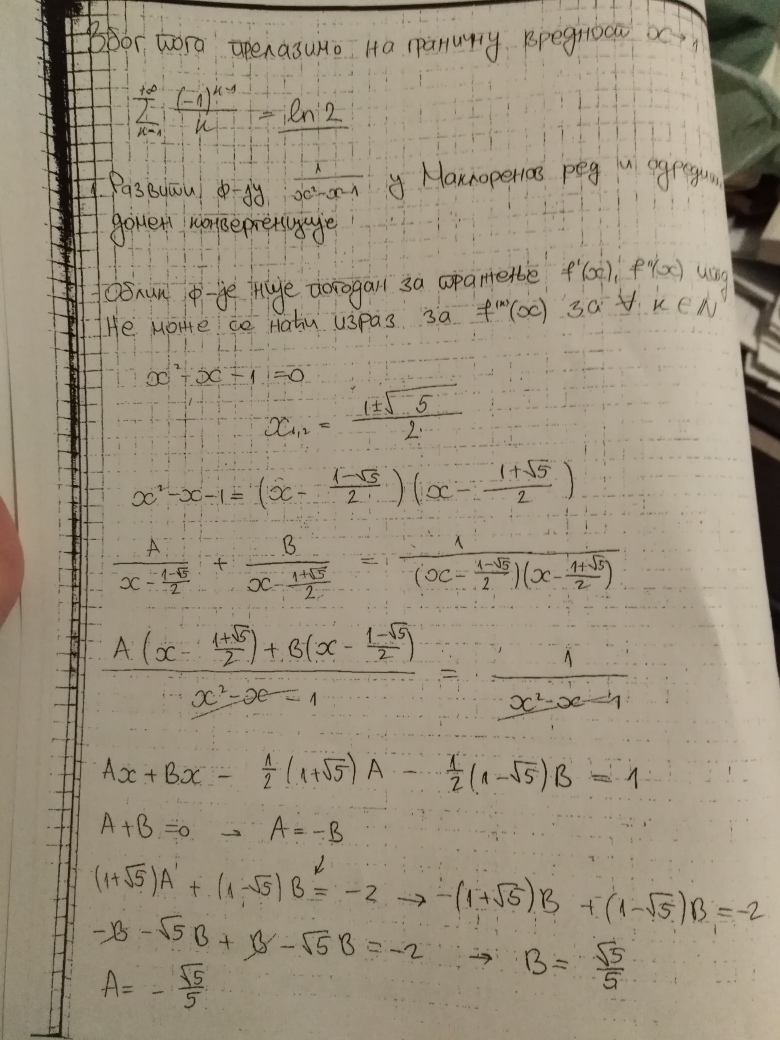 Због тога прелазимо на граничну вредност x→1
\sum_{k=1}^{+\infty} \frac{(-1)^{k-1}}{k} = ln 2
1. Развити ф-ју \frac{1}{x²-x-1} у Маклоренов ред и одредити
домен конвергенције
Облик ф-је није погодан за тражење f'(x), f''(x) итд
Не може се наћи израз за f^{(k)}(x) за ∀ k ∈ N
x²-x-1=0
x_{1,2} = \frac{1±\sqrt{5}}{2}
x²-x-1 = (x - \frac{1-\sqrt{5}}{2})(x - \frac{1+\sqrt{5}}{2})
\frac{A}{x-\frac{1-\sqrt{5}}{2}} + \frac{B}{x-\frac{1+\sqrt{5}}{2}} = \frac{1}{(x-\frac{1-\sqrt{5}}{2})(x-\frac{1+\sqrt{5}}{2})}
\frac{A(x-\frac{1+\sqrt{5}}{2})+B(x-\frac{1-\sqrt{5}}{2})}{x²-x-1} = \frac{1}{x²-x-1}
Ax+Bx - \frac{1}{2}(1+\sqrt{5})A - \frac{1}{2}(1-\sqrt{5})B = 1
A+B=0 → A=-B
(1+\sqrt{5})A + (1-\sqrt{5})B = -2 → -(1+\sqrt{5})B + (1-\sqrt{5})B = -2
-B-\sqrt{5}B + B-\sqrt{5}B = -2 → B = \frac{\sqrt{5}}{5}
A = -\frac{\sqrt{5}}{5}